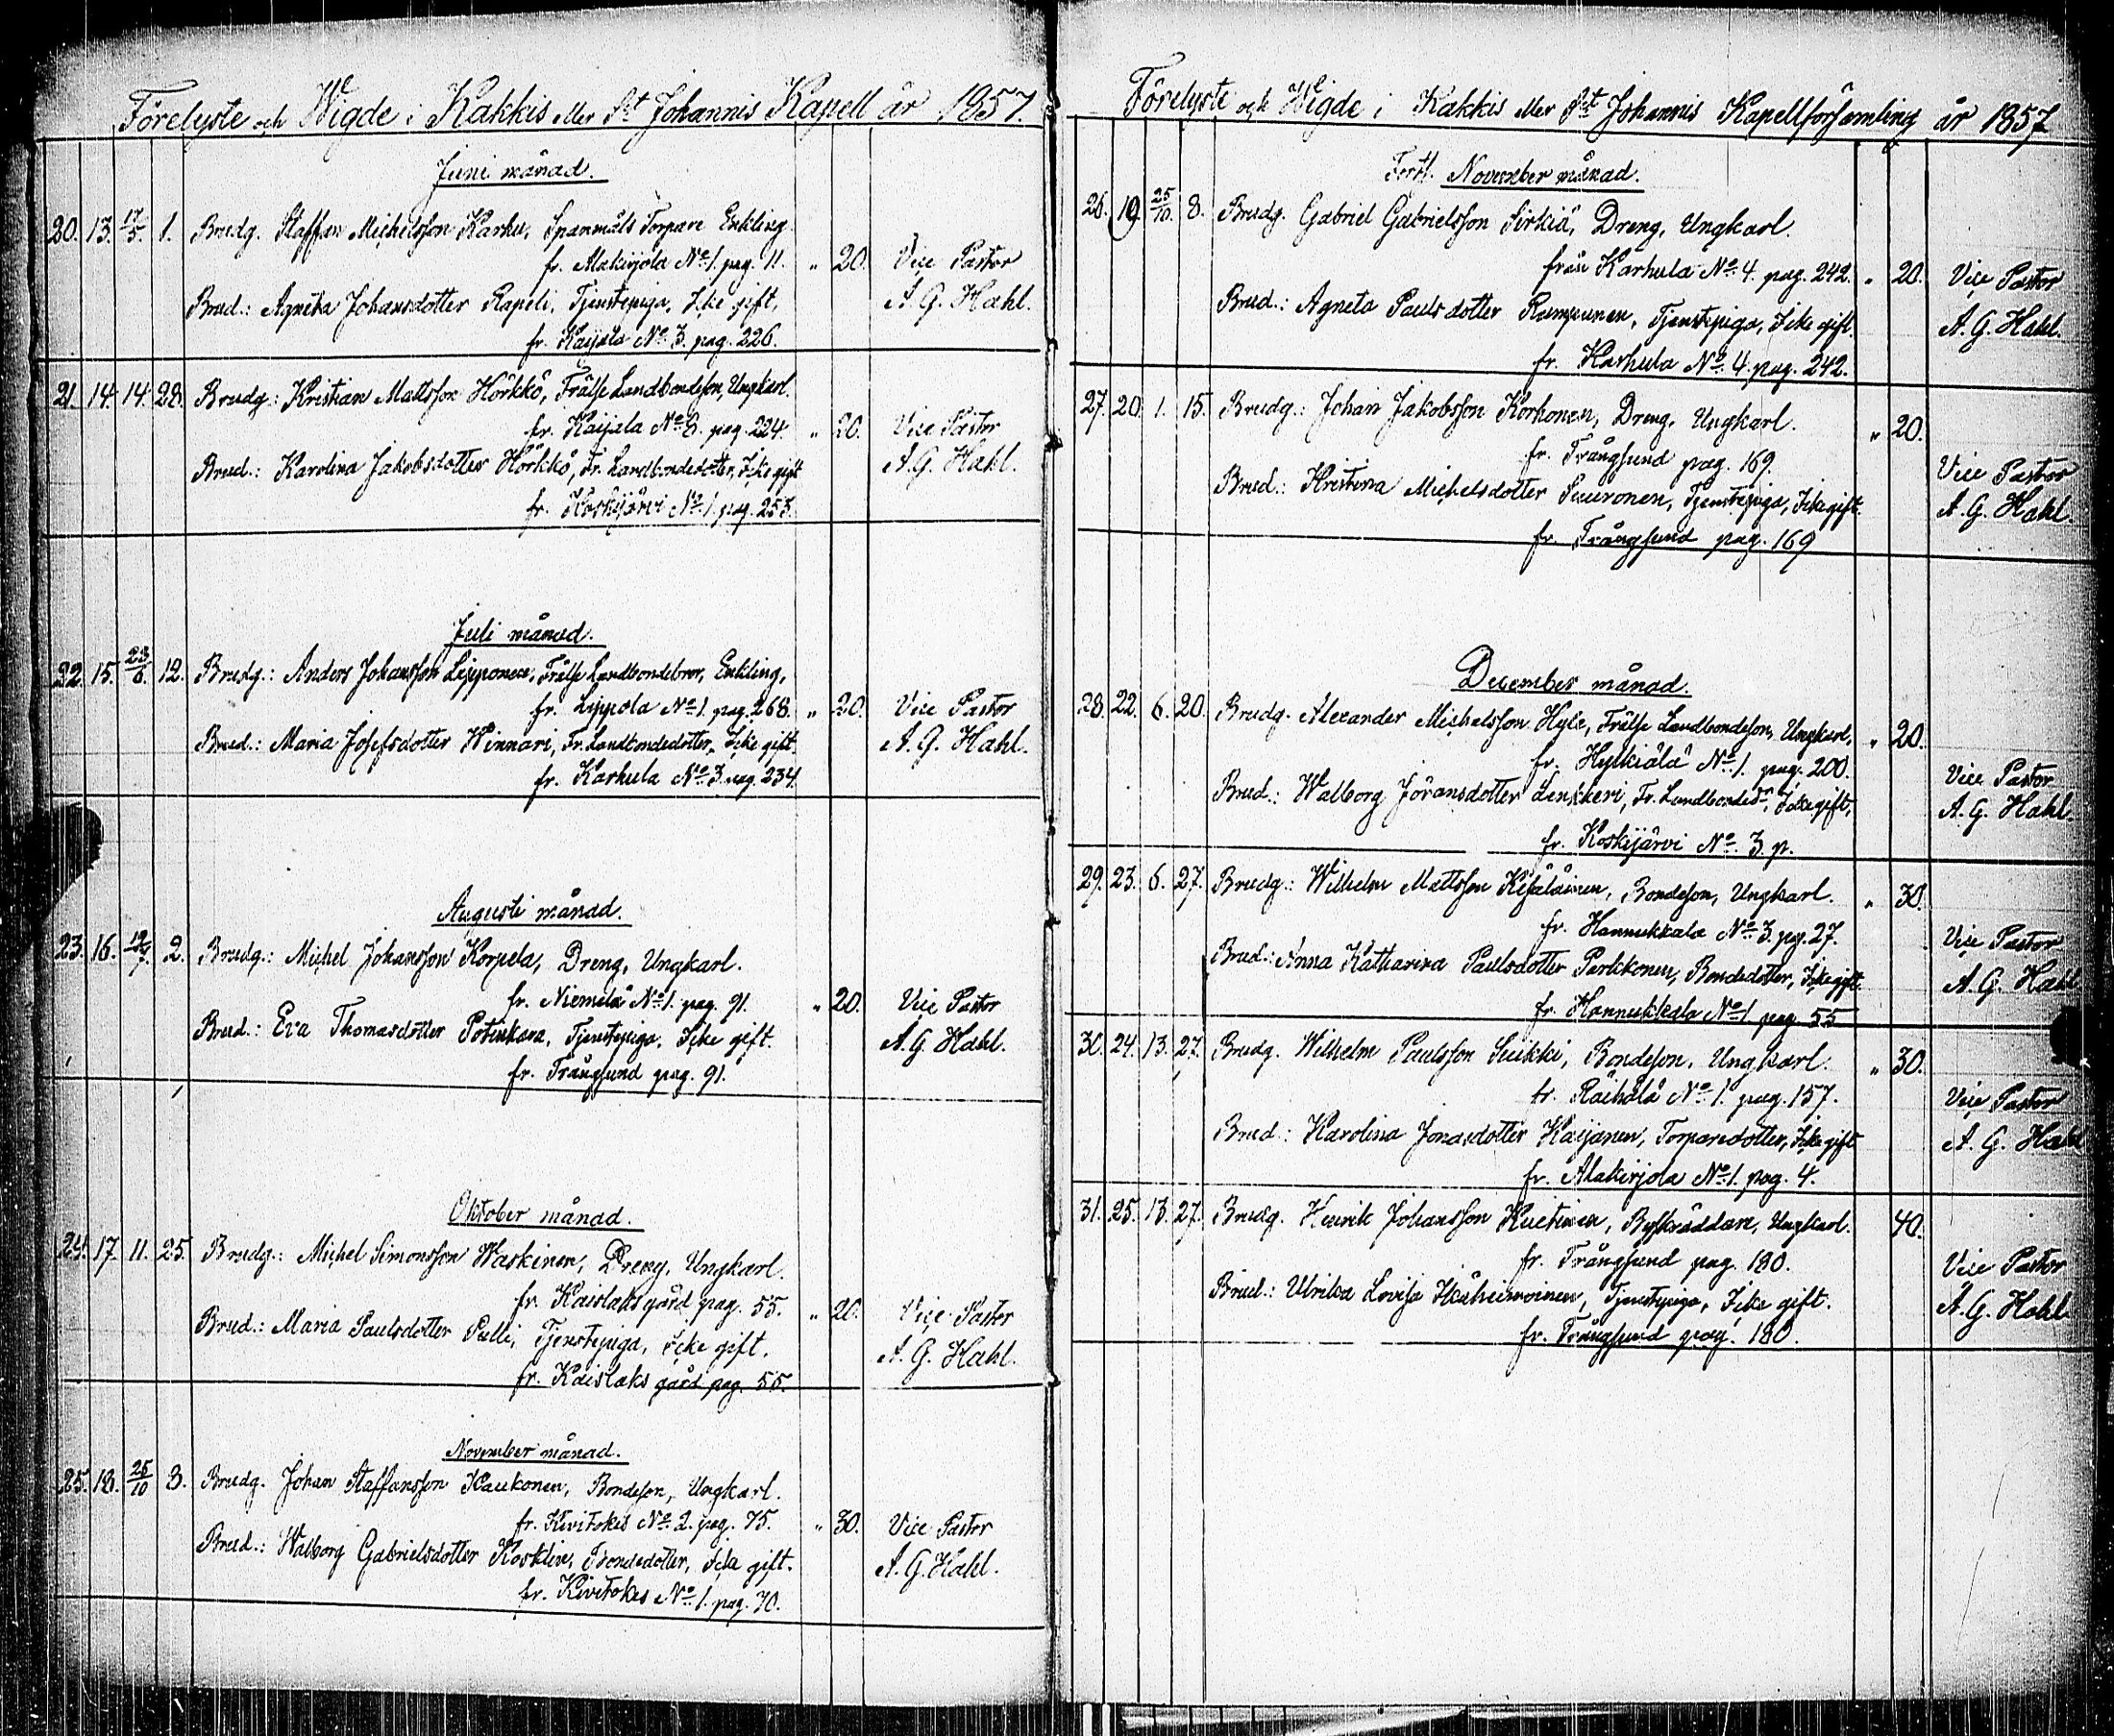 Förelyste och Wigde i Kakkis eller St Johannis Kapell år 1857.
Juni månad.
20. 13. 17/5. 1. Brudg. Staffan Michelsson Karhu, Spanmåls Torpare Enkling
fr. Alakirjola No 1. pag. 11. „ 20. Vice Pastor
Brud.: Agneta Johansdotter Rapeli, Tjenstepiga, Icke gift, A. G. Hahl.
fr. Kaijala No 3. pag. 226.
21. 14. 14. 28. Brudg.: Kristian Mattsson Hörkkö, Frälse Landbondeson, Ungkarl.
fr. Kaijala No 8. pag. 224. „ 20. Vice Pastor
Brud.: Karolina Jakobsdotter Hörkkö, Fr. Landbondedotter, Icke gift A. G. Hahl.
fr. Koskijärvi No 1. pag. 255.
Juli månad.
22. 15. 23/6. 12. Brudg.: Anders Johansson Lipponen, Frälse Landbondebror, Enkling,
fr. Lippola No 1. pag. 268. „ 20. Vice Pastor
Brud.: Maria Josefsdotter Winnari, Fr. Landbondedotter, Icke gift. A. G. Hahl.
fr. Karhula No 3. pag. 234.
Augusti månad.
23. 16. 19/7. 2. Brudg.: Michel Johansson Korpela, Dreng, Ungkarl.
fr. Niemelä No 1. pag. 91. „ 20. Vice Pastor
Brud.: Eva Thomasdotter Potinkara, Tjenstepiga, Icke gift. A. G. Hahl.
fr. Trångsund pag. 91.
Oktober månad.
24. 17. 11. 25. Brudg.: Michel Simonsson Waskinen, Dreng, Ungkarl.
fr. Kaislaks gård pag. 55. „ 20. Vice Pastor
Brud.: Maria Paulsdotter Pulli, Tjenstepiga, Icke gift. A. G. Hahl.
fr. Kaislaks gård pag. 55.
November månad.
25. 18. 25/10 8. Brudg. Johan Staffansson Kaukonen, Bondeson, Ungkarl.
fr. Kivitokes No 2. pag. 75. „ 30. Vice Pastor
Brud.: Walborg Gabrielsdotter Kosklin, Bondedotter, Icke gift. A. G. Hahl.
fr. Kivitokes No 1. pag. 70.
Förelyste och Wigde i Kakkis eller St Johannis Kapellförsamling år 1857
Forts. November månad.
26. 19 25/10. 8. Brudg. Gabriel Gabrielsson Sirkiä, Dreng, Ungkarl.
från Karhula No 4. pag. 242. „ 20. Vice Pastor
Brud.: Agneta Paulsdotter Rampanen, Tjenstepiga, Icke gift. A. G. Hahl.
fr. Karhula No 4. pag. 242.
27. 20. 1. 15. Brudg.: Johan Jakobsson Korhonen, Dreng, Ungkarl. „ 20.
fr. Trångsund pag. 169. Vice Pastor
Brud.: Kristina Michelsdotter Sauronen, Tjenstepiga, Icke gift. A. G. Hahl.
fr. Trångsund pag. 169
December månad.
28. 22. 6. 20. Brudg. Alexander Michelsson Hyle, Frälse Landbondeson, Ungkarl, „ 20.
fr. Hylkiälä No 1. pag. 200. Vice Pastor
Brud.: Walborg Jöransdotter Lenkkeri, Fr. Landbondedr, Icke gift, A. G. Hahl.
fr. Koskijärvi No 3. p.
29. 23. 6. 27. Brudg.: Wilhelm Mattsson Kesäläinen, Bondeson, Ungkarl. „ 30.
fr. Hannukkala No 3. pg. 27. Vice Pastor
Brud.: Anna Katharina Paulsdotter Parkkonen, Bondedotter, Icke gift. A. G. Hahl
fr. Hannukkala No 1 pag. 55
30. 24. 13. 27. Brudg. Wilhelm Paulsson Suikki, Bondeson, Ungkarl. „ 30.
fr. Räihälä No 1. pag. 157. Vice Pastor
Brud.: Karolina Jonasdotter Kaijanen, Torparedotter, Icke gift A. G. Hahl
fr. Alakirjola No 1. pag. 4.
31. 25. 13. 27. Brudg. Henrik Johansson Kuetinen, Byskräddare, Ungkarl. 40.
fr. Trångsund pag. 180. Vice Pastor
Brud.: Ulrika Lovisa Ikäheimoinen, Tjenstepiga, Icke gift. A. G. Hahl
fr. Trångsund pag. 180.